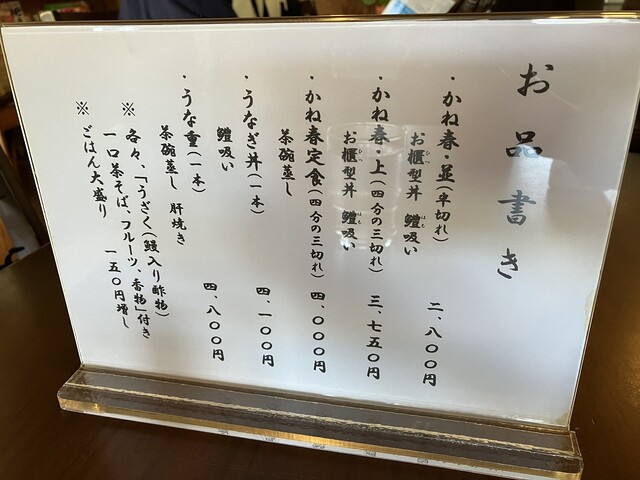 お品書き
・かね春・並(半切れ)
お櫃型丼 鱧吸い 二、八〇〇円
・かね春・上(四分の三切れ)
お櫃型丼 鱧吸い 三、七五〇円
・かね春定食(四分の三切れ) 四、〇〇〇円
茶碗蒸し
・うなぎ丼(一本) 四、一〇〇円
鱧吸い
・うな重(一本)
茶碗蒸し 肝焼き 四、八〇〇円
※ 各々、「うざく(鰻入り酢物)
一口茶そば、フルーツ、香物」付き
※ ごはん大盛り 一五〇円増し